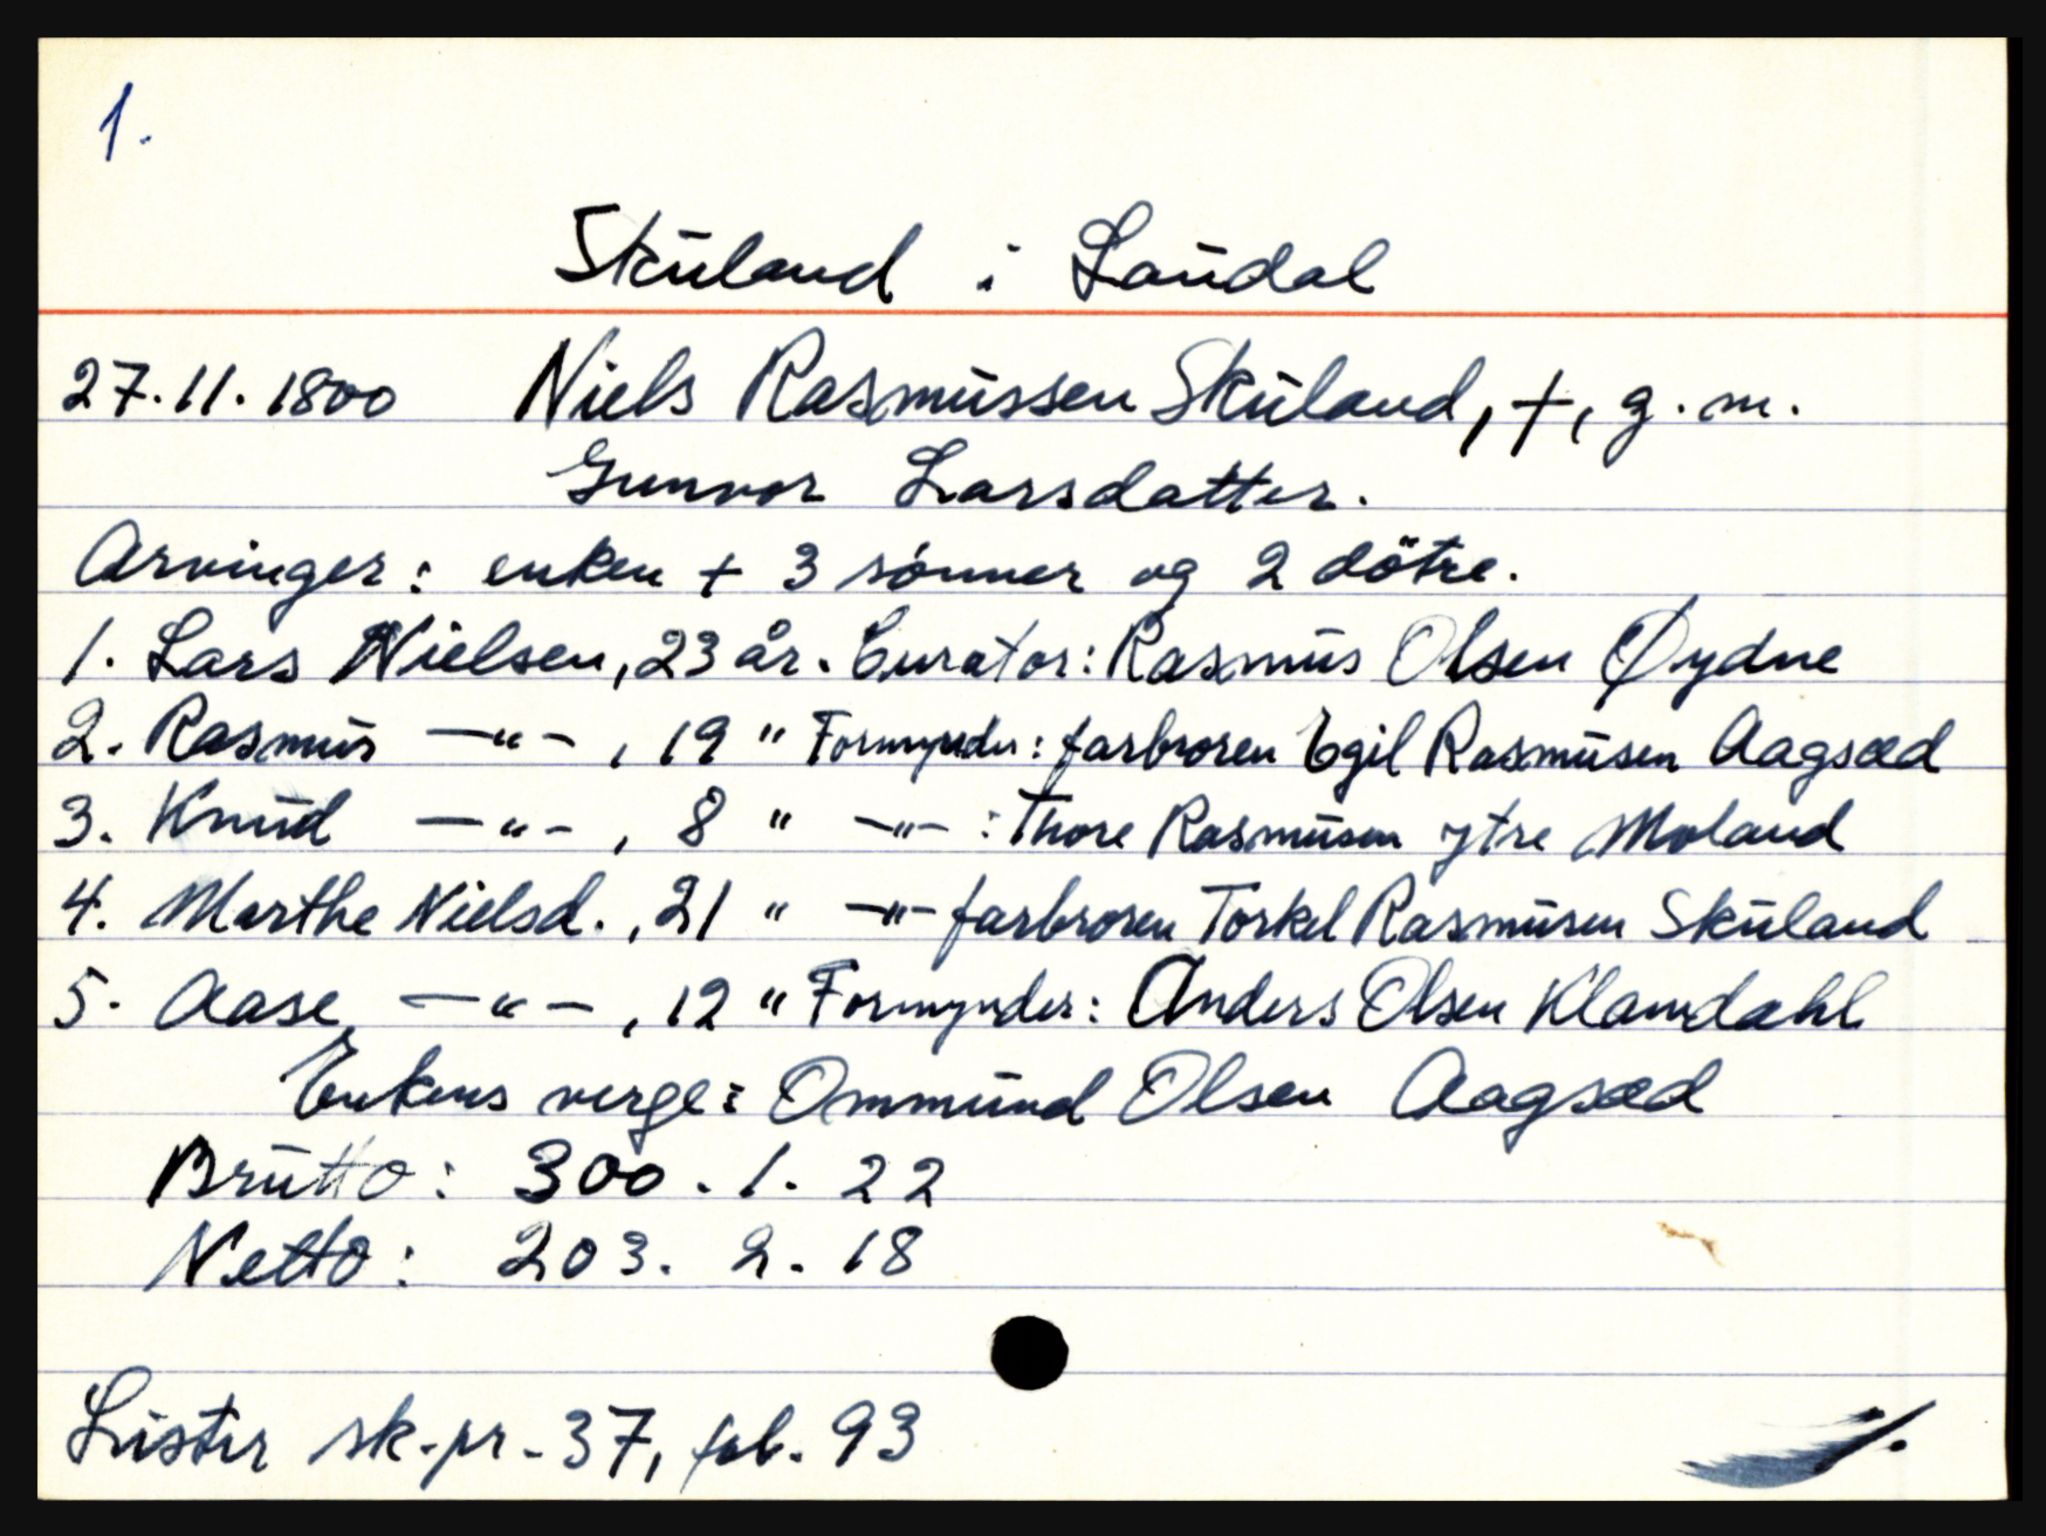 1.
Skuland i Laudal
27.11.1800 Niels Rasmussen Skuland, †, g.m.
Gunvor Larsdatter.
Arvinger: enken + 3 sönner og 2 dötre.
1. Lars Nielsen, 23 år. Curator: Rasmus Olsen Øydne
2. Rasmus —"—, 19 " Formynder: farbroren Egil Rasmusen Aagsæd
3. Knud —"—, 8 " —"— : Thore Rasmusen ytre Moland
4. Marthe Nielsd., 21 " —"— farbroren Torkel Rasmusen Skuland
5. Aase —"—, 12 " Formynder: Anders Olsen Klamdahl
Enkens verge: Ommund Olsen Aagsæd
Brutto: 300. 1. 22
Netto: 203. 2. 18
Lister sk.pr. 37, fol. 93